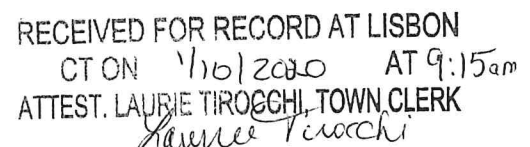 RECEIVED FOR RECORD AT LISBON
CT ON 1/10/2020 AT 9:15am
ATTEST. LAURIE TIROCCHI, TOWN CLERK
Laurie Tirocchi